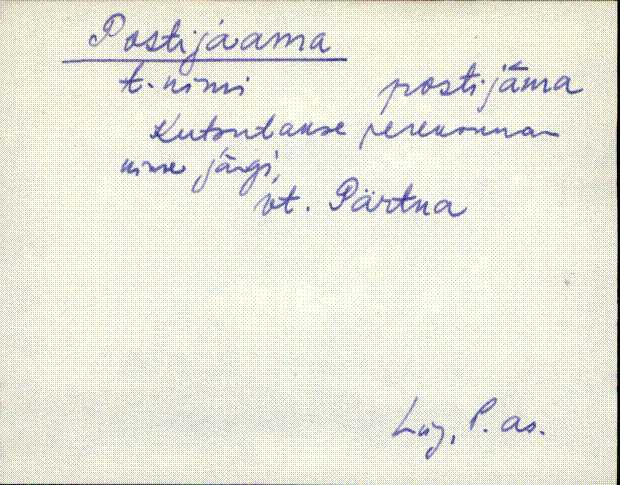 Postijaama
t. nimi postijāma
Kutsutakse perekonna-
nime järgi,
vt. Pärtna
Lüg, P. as.